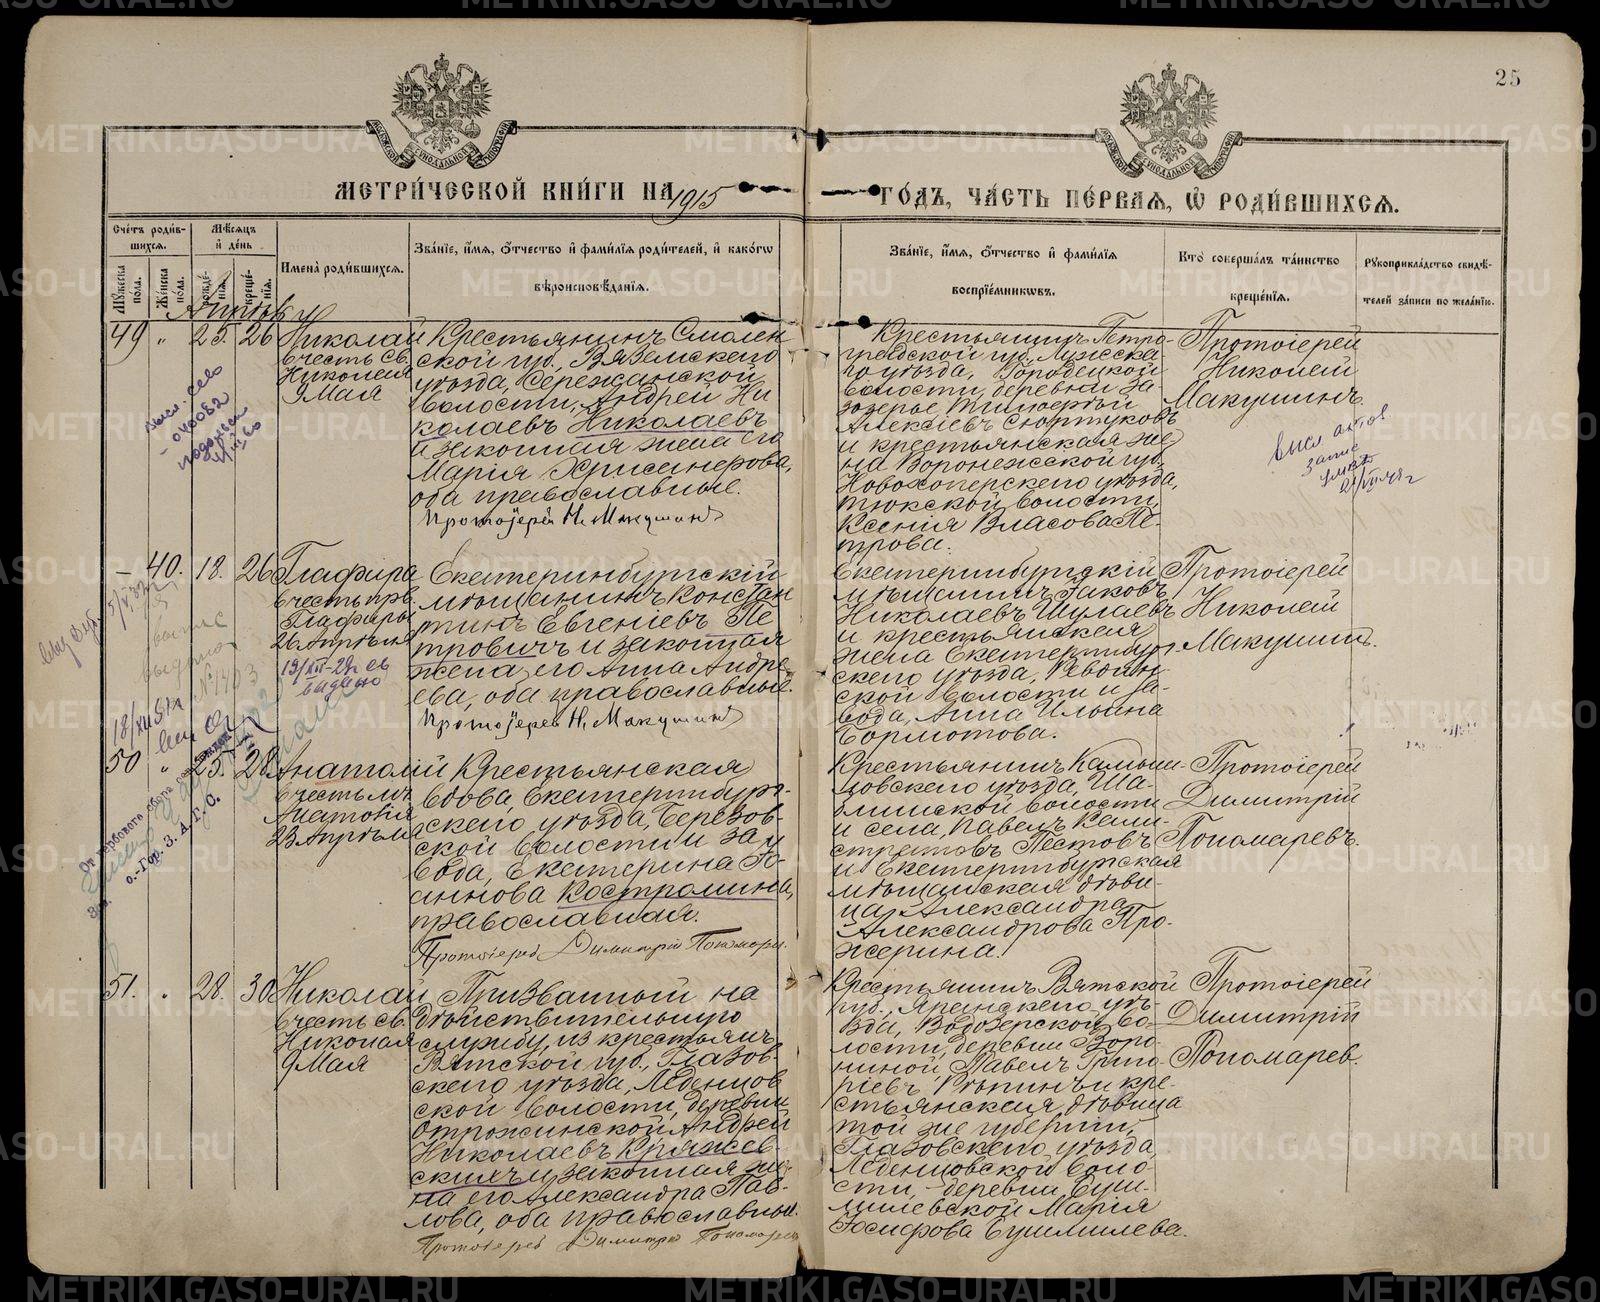 25
МЕТРИ́ЧЕСКОЙ КНИ́ГИ НА 1915 ГО́ДЪ, ЧА́СТЬ ПЕ́РВАѦ, Ѡ҆ РОДИ́ВШИХСѦ.
Сче́тъ роди́в-
шихсѧ.
Мꙋ́жеска по́ла.
Же́нска по́ла.
Мѣ́сѧцъ
и҆ де́нь
рожде́-нїѧ.
креще́-нїѧ.
И҆мена̀ роди́вшихсѧ.
Зва́нїе, и҆́мѧ, ѻ҆́тчество и҆ фами́лїѧ роди́телей, и҆ како́гѡ
вѣроисповѣ́данїѧ.
Зва́нїе, и҆́мѧ, ѻ҆́тчество и҆ фами́лїѧ
воспрїе́мникѡвъ.
Кто̀ соверша́лъ та́инство
креще́нїѧ.
Рꙋкоприкла́дство свидѣ́-
телей за́писи по жела́нїю.
49 " 25. 26
Николай
въ честь Св.
Николая
9 Мая
Крестьянинъ Смолен
ской губ., Вяземскаго
уѣзда, Сережанской
волости, Андрей Ни
колаевъ Николаевъ
и законная жена его
Марія Хрисанфова,
оба православные.
Протоіерей Н. Макушинъ
Крестьянинъ Петро-
градской губ., Лужска
го уѣзда, Городецкой
волости, деревни За-
озерье,
Алексѣевъ Сюртуковъ
и крестьянская же
на Воронежской губ.,
Новохоперскаго уѣзда,
волости,
Ксенія Власова Пе-
трова.
Протоіерей
Николай
Макушинъ.
– 40. 18. 26
Глафира
въ честь прв.
Глафиры
26 Апрѣля
Екатеринбургскій
мѣщанинъ Констан
тинъ Евгеніевъ Пе
тровичъ и законная
жена его Анна Андре
ева, оба православные.
Протоіерей Н. Макушинъ
Екатеринбургскій
мѣщанинъ Іаковъ
Николаевъ Шулаевъ
и крестьянская
жена Екатеринбург-
скаго уѣзда, Ревдин-
ской волости и за-
вода, Анна Ильина
Бормотова.
Протоіерей
Николай
Макушинъ.
50 " 25. 28.
Анатолій
въ честь мч.
Анатолія
23 Апрѣля
Крестьянская
вдова, Екатеринбург-
скаго уѣзда, Березов-
ской волости и за
вода, Екатерина Іо-
аннова Костромина,
православная.
Протоіерей Димитрій Пономарев
Крестьянинъ Камыш-
ловскаго уѣзда,
волости
и села, Павелъ Кали-
стратовъ Пестовъ
и Екатеринбургская
мѣщанская дѣви-
ца Александра
Александрова Про-
жерина.
Протоіерей
Димитрій
Пономаревъ.
51. " 28. 30
Николай,
въ честь Св.
Николая
9 Мая
Призванный на
дѣйствительную
службу, из крестьянъ
Вятской губ., Глазов-
скаго уѣзда, Леденцов
ской волости, деревни
Отрожинской Андрей
Николаевъ Кряжев-
скихъ и законная же
на его Александра Пав-
лова, оба православные.
Протоіерей Димитрій Пономарев
Крестьянинъ Вятской
губ., Яранскаго уѣ-
зда, Водозерской во-
лости, деревни Воро-
ниной Павелъ Григо
ріевъ Рѣпинъ и кре-
стьянская дѣвица
той же губерніи,
Глазовскаго уѣзда,
Леденцовской воло-
сти, деревни Буш-
милевской Марія
Іосифова Бушмилева.
Протоіерей
Димитрій
Пономарев.